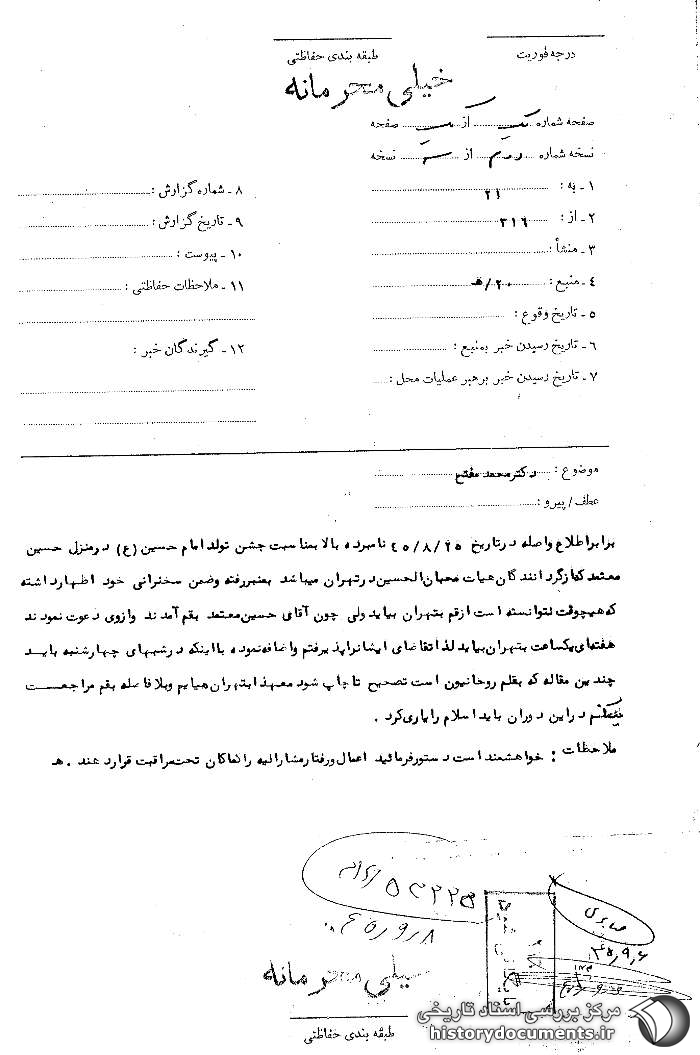 درجه فوریت
طبقه بندی حفاظتی
خیلی محرمانه
صفحه شماره یک از یک صفحه
نسخه شماره دوم از سه نسخه
۱ ـ به : ۲۱
۲ ـ از : ۳۱۶
۳ ـ منشأ :
۴ ـ منبع : ۲۰/هـ
۵ ـ تاریخ وقوع :
۶ ـ تاریخ رسیدن خبر بمنبع :
۷ ـ تاریخ رسیدن خبر برهبر عملیات محل :
۸ ـ شماره گزارش :
۹ ـ تاریخ گزارش :
۱۰ ـ پیوست :
۱۱ ـ ملاحظات حفاظتی :
۱۲ ـ گیرندگان خبر :
موضوع : دکتر محمد مفتح
عطف / پیرو :
برابر اطلاع واصله در تاریخ ۴۵/۸/۲۵ نامبرده بالا بمناسبت جشن تولد امام حسین (ع) در منزل حسین
معتمد که از گردانندگان هیات محبان الحسین در تهران میباشد بمنبر رفته وضمن سخنرانی خود اظهار داشته
که هیچوقت نتوانسته است از قم بتهران بیاید ولی چون آقای حسین معتمد بقم آمدند وازوی دعوت نمودند
هفته‌ای یکساعت بتهران بیاید لذا تقاضای ایشانرا پذیرفتم واضافه نموده با اینکه در شبهای چهارشنبه باید
چندین مقاله که بقلم روحانیون است تصحیح تا چاپ شود معهذا بتهران میایم وبلافاصله بقم مراجعت
میکنم در این دوران باید اسلام را یاری کرد .
ملاحظات : خواهشمند است دستور فرمائید اعمال و رفتار مشارالیه را کماکان تحت مراقبت قرار دهند . هـ
صابری
۴۵٫۹٫۶
خیلی محرمانه
طبقه بندی حفاظتی
مرکز بررسی اسناد تاریخی
historydocuments.ir